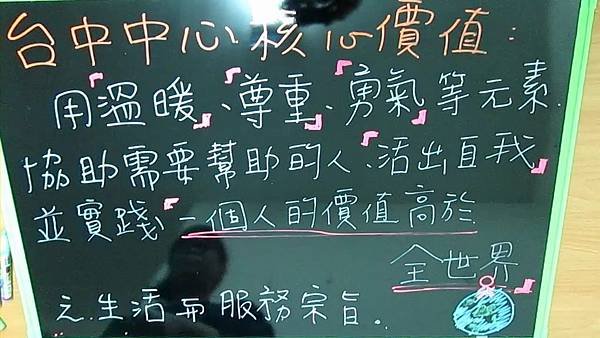 台中中心核心價值:
用「溫暖」、「尊重」、「勇氣」等元素.
協助需要幫助的人、「活出自我」
並實踐、「一個人的價值高於
全世界」
之.生活而服務宗旨。